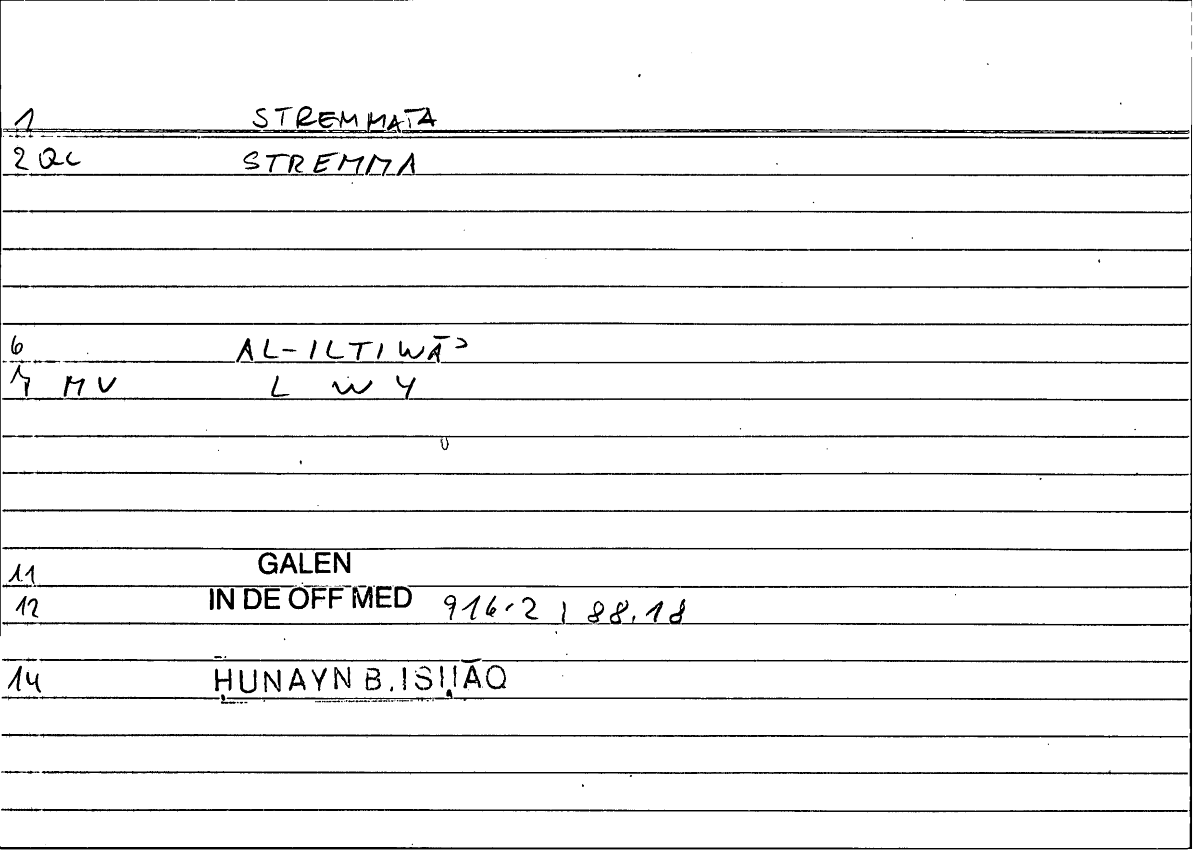 1 STREMMATA
2 QC STREMMA
6 AL-ILTIWĀʾ
7 MV L W Y
11 GALEN
12 IN DE OFF MED 916.2 | 88.18
14 ḤUNAYN B. ISḤĀQ